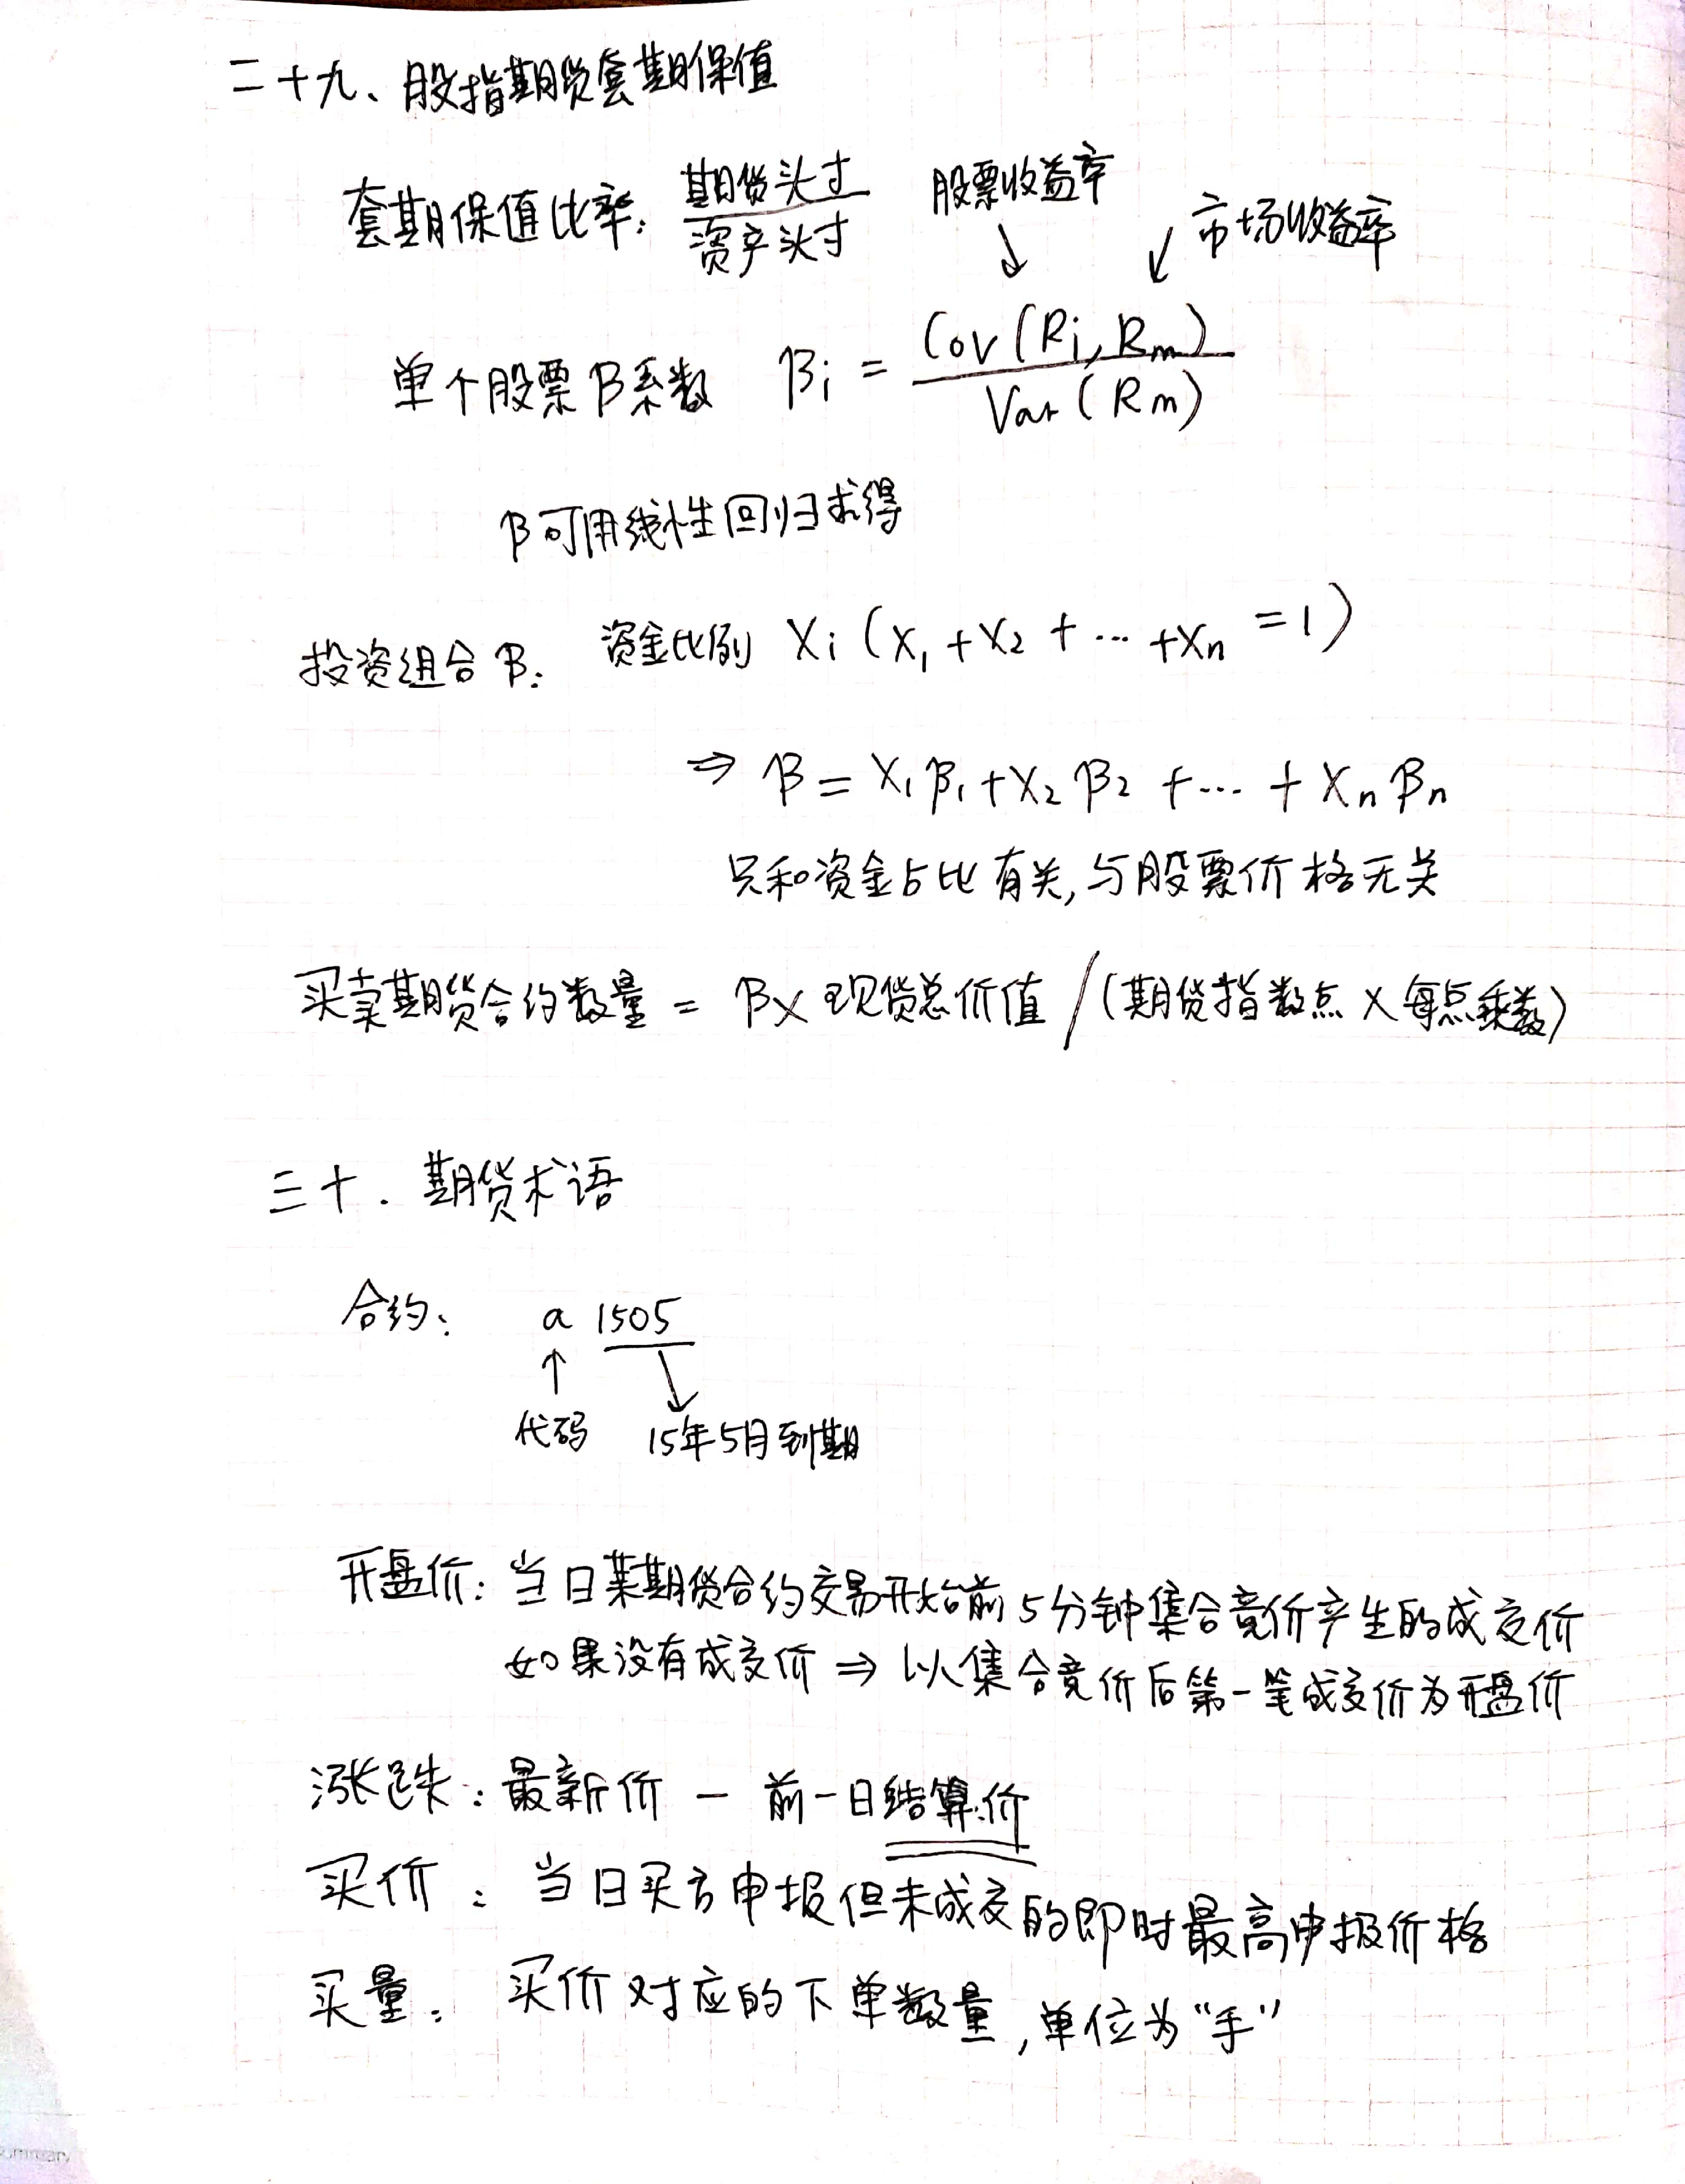 二十九、股指期货套期保值
套期保值比率: 期货头寸/资产头寸
股票收益率 ↓ 市场收益率 ↙
单个股票β系数 βi = Cov(Ri, Rm) / Var(Rm)
β可用线性回归求得
投资组合β: 资金比例 Xi (X₁ + X₂ + … + Xn = 1)
⇒ β = X₁β₁ + X₂β₂ + … + Xnβn
只和资金占比有关, 与股票价格无关
买卖期货合约数量 = β× 现货总价值 / (期货指数点 × 每点乘数)
三十. 期货术语
合约: a 1505
↑ ↘
代码 15年5月到期
开盘价: 当日某期货合约交易开始前5分钟集合竞价产生的成交价
如果没有成交价 ⇒ 以集合竞价后第一笔成交价为开盘价
涨跌: 最新价 — 前一日结算价
买价: 当日买方申报但未成交的即时最高申报价格
买量: 买价对应的下单数量, 单位为“手”